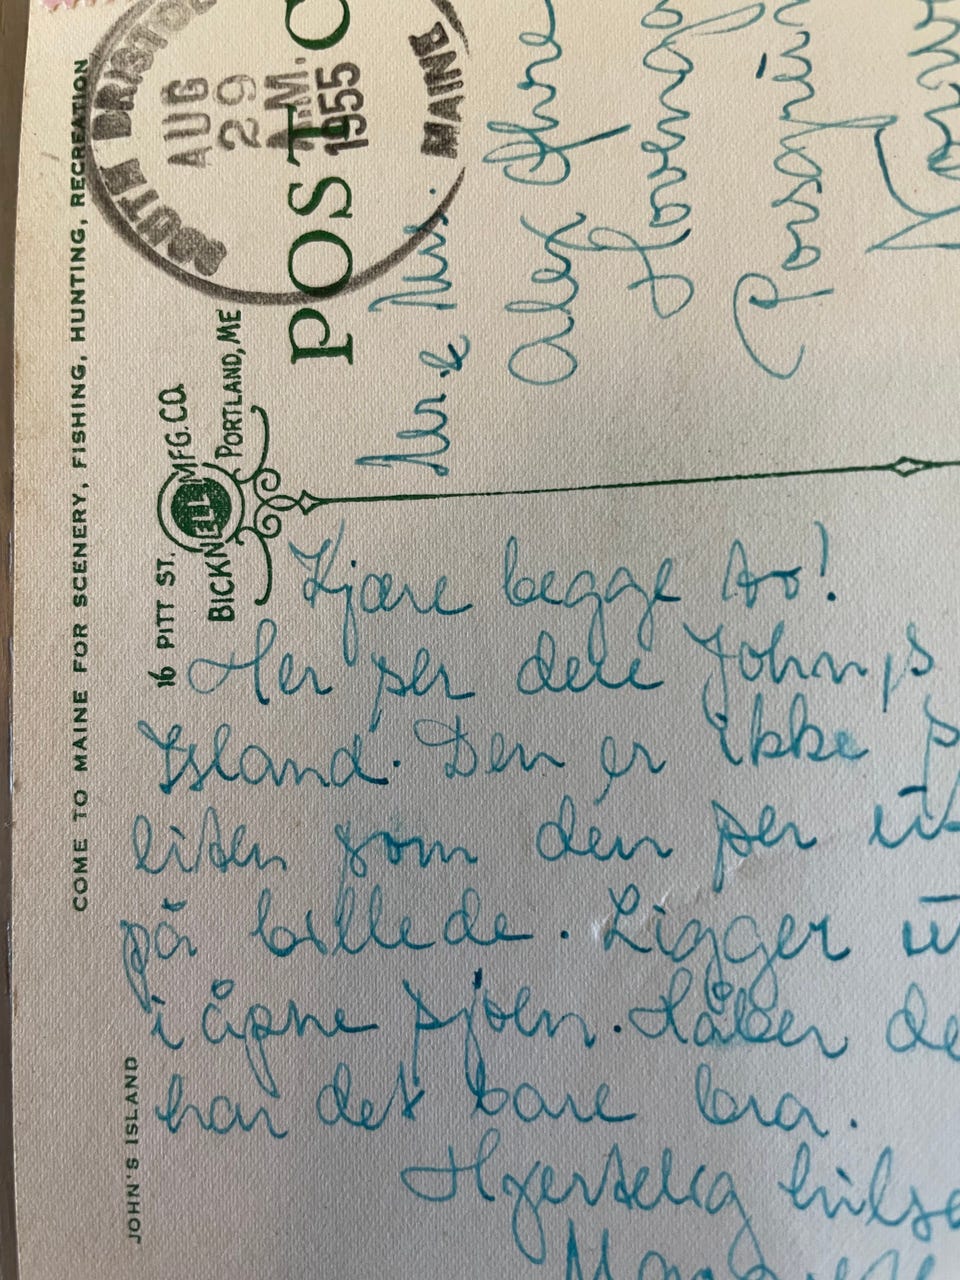 COME TO MAINE FOR SCENERY, FISHING, HUNTING, RECREATION
SOUTH BRISTO
AUG
29
A.M.
1955
MAINE
POST C
16 PITT ST.
BICKNELL MFG. CO.
PORTLAND, ME
Mr. & Mrs.
Alex
Porsgrun
Kjære begge to!
Her ser dere John,s
Island. Den er ikke s
liten som den ser ut
på billede. Ligger ut
i åpne sjøen. Håber de
har det bare bra.
Hjertelig hilse
JOHN'S ISLAND